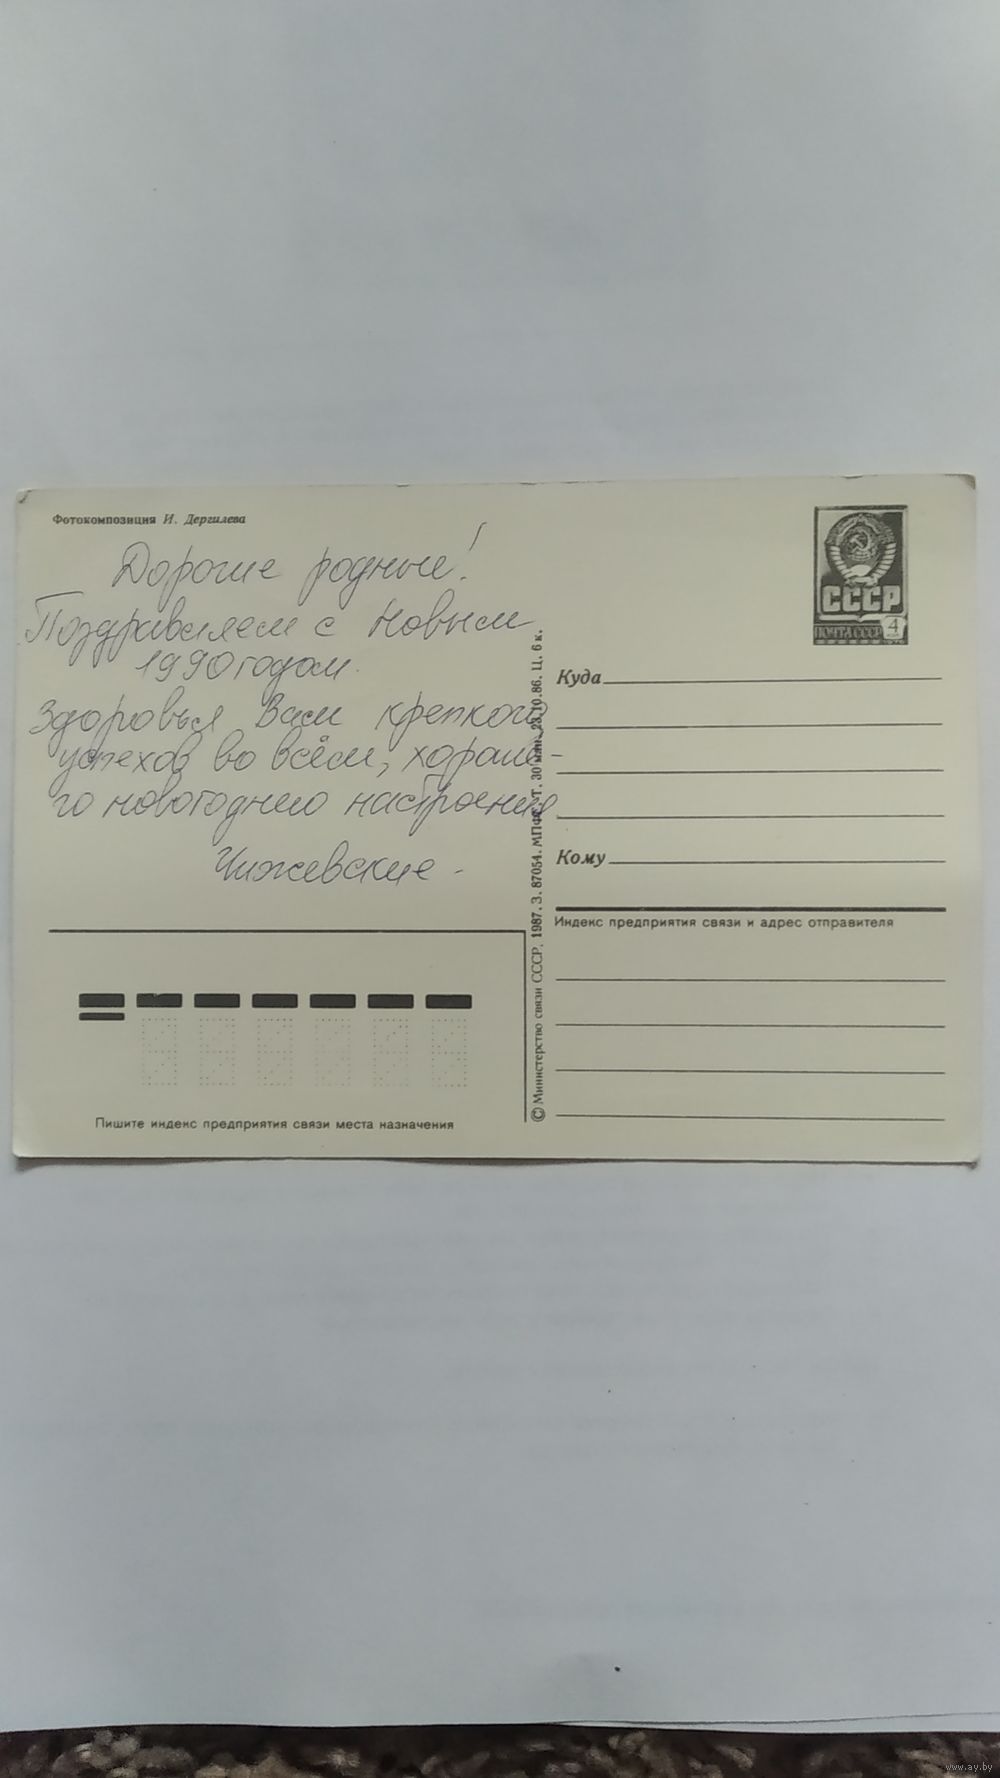 Фотокомпозиция И. Дергилева
Дорогие родные!
Поздравляем с Новым
1990 годом.
Здоровья Вам крепкого
успехов во всём, хороше-
го новогоднего настроения
Чижевские.
СССР
ПОЧТА СССР
4
Куда
Кому
Индекс предприятия связи и адрес отправителя
Пишите индекс предприятия связи места назначения
© Министерство связи СССР. 1987. З. 87054. МПФГ. Т. 30 млн. 23.10.86. Ц. 6 к.
www.ay.by